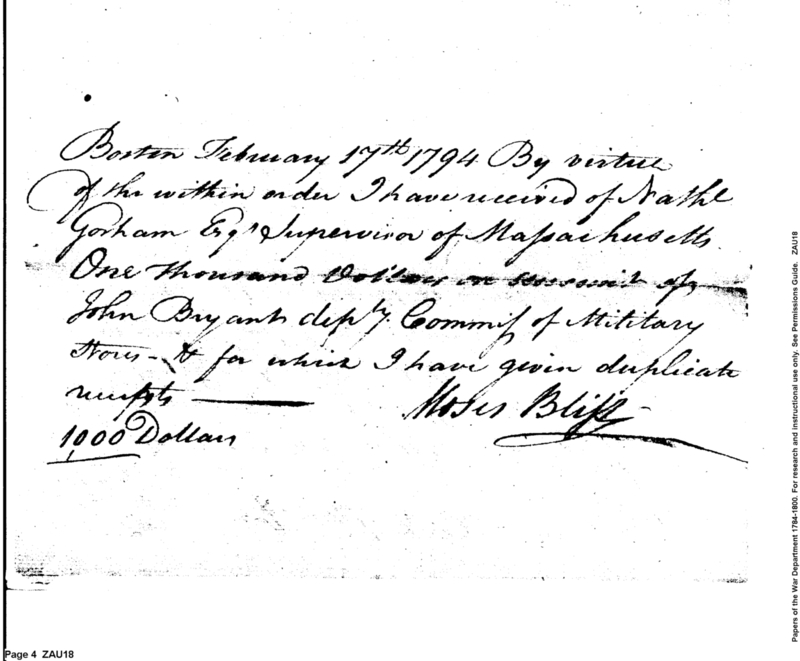 Boston February 17th 1794 By virtue
of the within order I have received of Nathl
Gorham Esqr Supervisor of Massachusetts
One thousand Dollars on account of
John Bryant depty Commiss of Military
Stores - & for which I have given duplicate
receipts
Moses Bliss
1000 Dollars
Page 4 ZAU18
Papers of the War Department 1784-1800. For research and instructional use only. See Permissions Guide. ZAU18